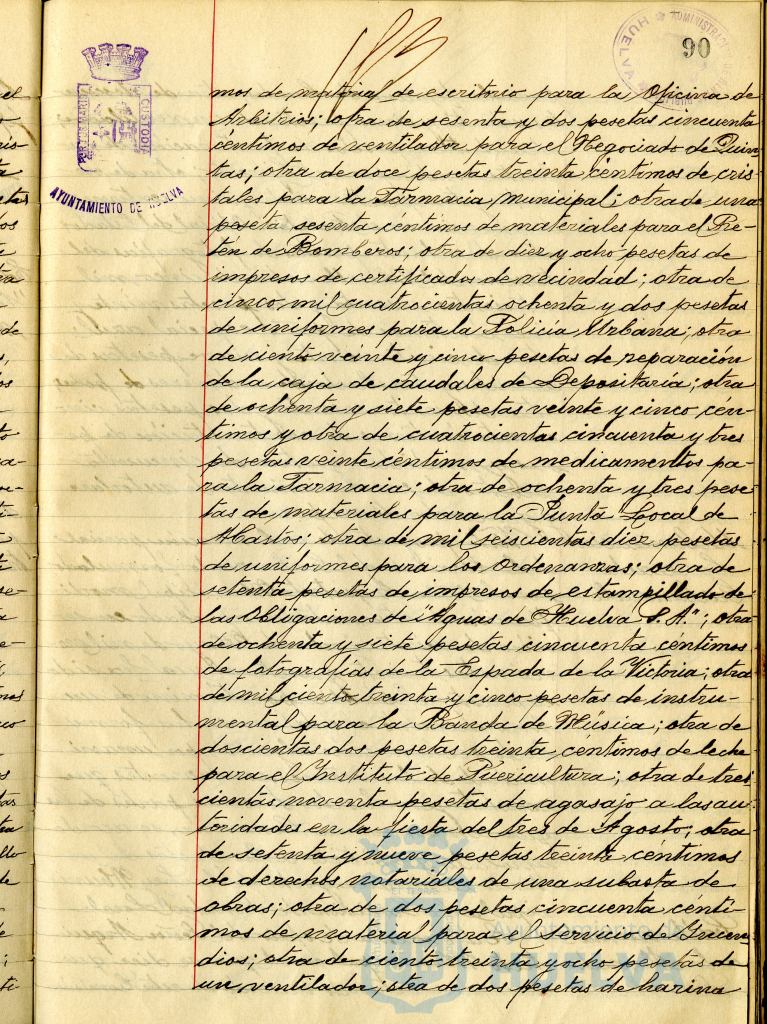 90
mos de material de escritorio para la Oficina de
Arbitrios; otra de sesenta y dos pesetas cincuenta
céntimos de ventilador para el Negociado de Quin-
tas; otra de doce pesetas treinta céntimos de cris-
tales para la Farmacia municipal; otra de una
peseta sesenta céntimos de materiales para el Re-
tén de Bomberos; otra de diez y ocho pesetas de
impresos de certificados de vecindad; otra de
cinco mil cuatrocientas ochenta y dos pesetas
de uniformes para la Policía Urbana; otra
de ciento veinte y cinco pesetas de reparación
de la caja de caudales de Depositaría; otra
de ochenta y siete pesetas veinte y cinco cén-
timos y otra de cuatrocientas cincuenta y tres
pesetas veinte céntimos de medicamentos pa-
ra la Farmacia; otra de ochenta y tres pese-
tas de materiales para la Junta Local de
Abastos; otra de mil seiscientas diez pesetas
de uniformes para los ordenanzas; otra de
setenta pesetas de impresos de estampillado de
las Obligaciones de "Aguas de Huelva S. A."; otra
de ochenta y siete pesetas cincuenta céntimos
de fotografías de la Espada de la Victoria; otra
de mil ciento treinta y cinco pesetas de instru-
mental para la Banda de Música; otra de
doscientas dos pesetas treinta centimos de leche
para el Instituto de Puericultura; otra de tres
cientas noventa pesetas de agasajo a las au-
toridades en la fiesta del tres de Agosto; otra
de setenta y nueve pesetas treinta céntimos
de derechos notariales de una subasta de
obras; otra de dos pesetas cincuenta cénti-
mos de material para el servicio de Incen-
dios; otra de ciento treinta y ocho pesetas de
un ventilador; otra de dos pesetas de harina
CUSTODIA
AYUNTAMIENTO DE HUELVA
HUELVA